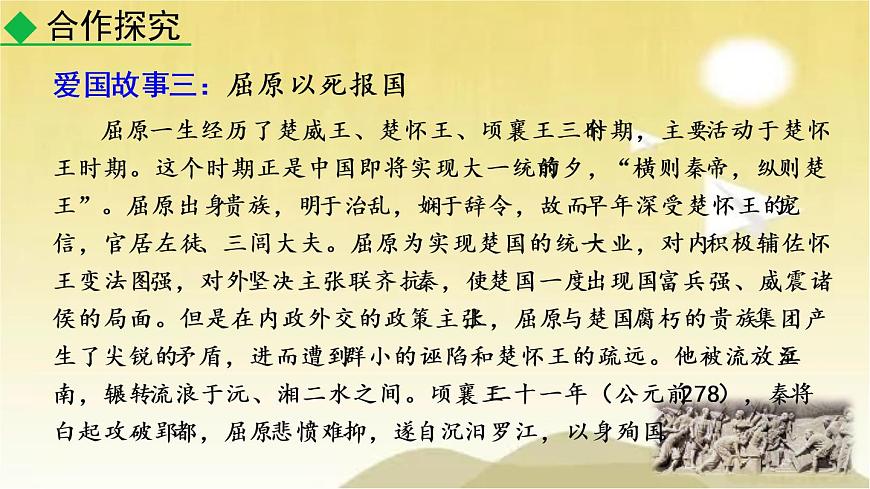 合作探究
爱国故事三：屈原以死报国
屈原一生经历了楚威王、楚怀王、顷襄王三个时期，主要活动于楚怀
王时期。这个时期正是中国即将实现大一统的前夕，“横则秦帝，纵则楚
王”。屈原出身贵族，明于治乱，娴于辞令，故而早年深受楚怀王的宠
信，官居左徒、三闾大夫。屈原为实现楚国的统一大业，对内积极辅佐怀
王变法图强，对外坚决主张联齐抗秦，使楚国一度出现国富兵强、威震诸
侯的局面。但是在内政外交的政策主张上，屈原与楚国腐朽的贵族集团产
生了尖锐的矛盾，进而遭到群小的诬陷和楚怀王的疏远。他被流放江
南，辗转流浪于沅、湘二水之间。顷襄王二十一年（公元前278），秦将
白起攻破郢都，屈原悲愤难抑，遂自沉汨罗江，以身殉国